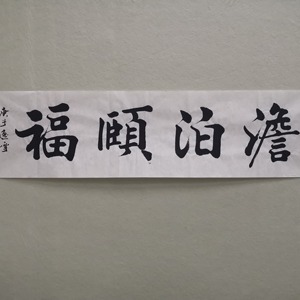 澹泊頤福